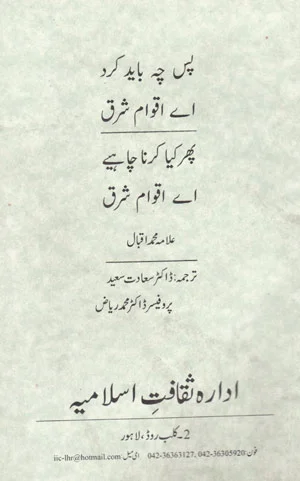 پس چہ باید کرد
اے اقوام شرق
پھر کیا کرنا چاہیے
اے اقوام شرق
علامہ محمد اقبال
ترجمہ: ڈاکٹر سعادت سعید
پروفیسر ڈاکٹر محمد ریاض
ادارہ ثقافتِ اسلامیہ
2۔ کلب روڈ، لاہور
فون 042-36363127, 042-36305920 ای میل iic-lhr@hotmail.com